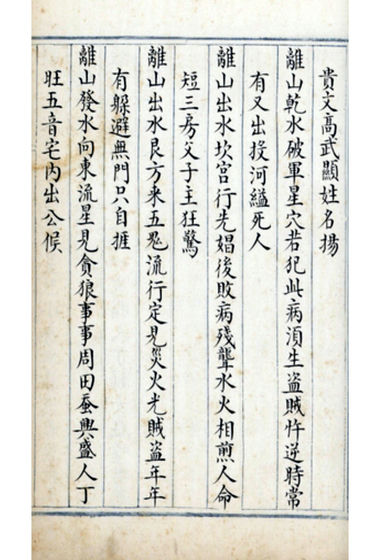 貴文高武顯姓名揚
離山乾水破軍星穴若犯此病湏生盜賊忤逆時常
有又出投河縊死人
離山出水坎宮行先娼後敗病殘聾水火相煎人命
短三房父子主狂驚
離山出水艮方来五鬼流行定見災火光賊盜年年
有躲避無門只自捱
離山發水向東流星見貪狼事事周田蚕興盛人丁
旺五音宅內出公侯